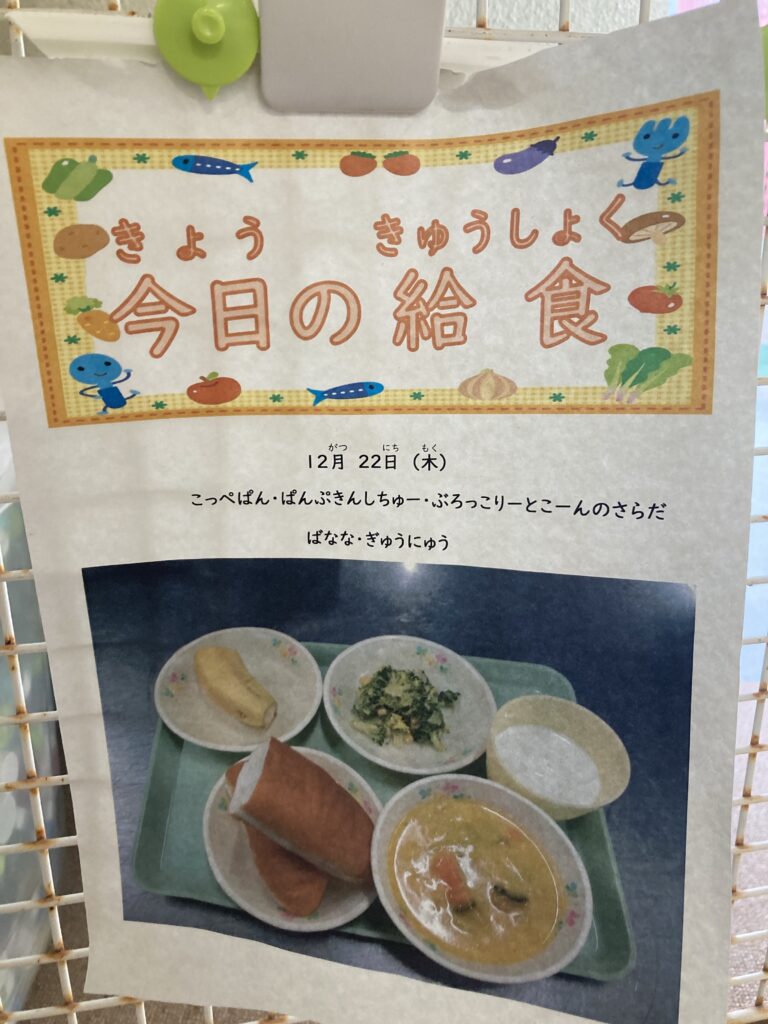 きょう きゅうしょく
今日の給食
がつ にち もく
12月 22日 (木)
こっぺぱん・ぱんぷきんしちゅー・ぶろっこりーとこーんのさらだ
ばなな・ぎゅうにゅう